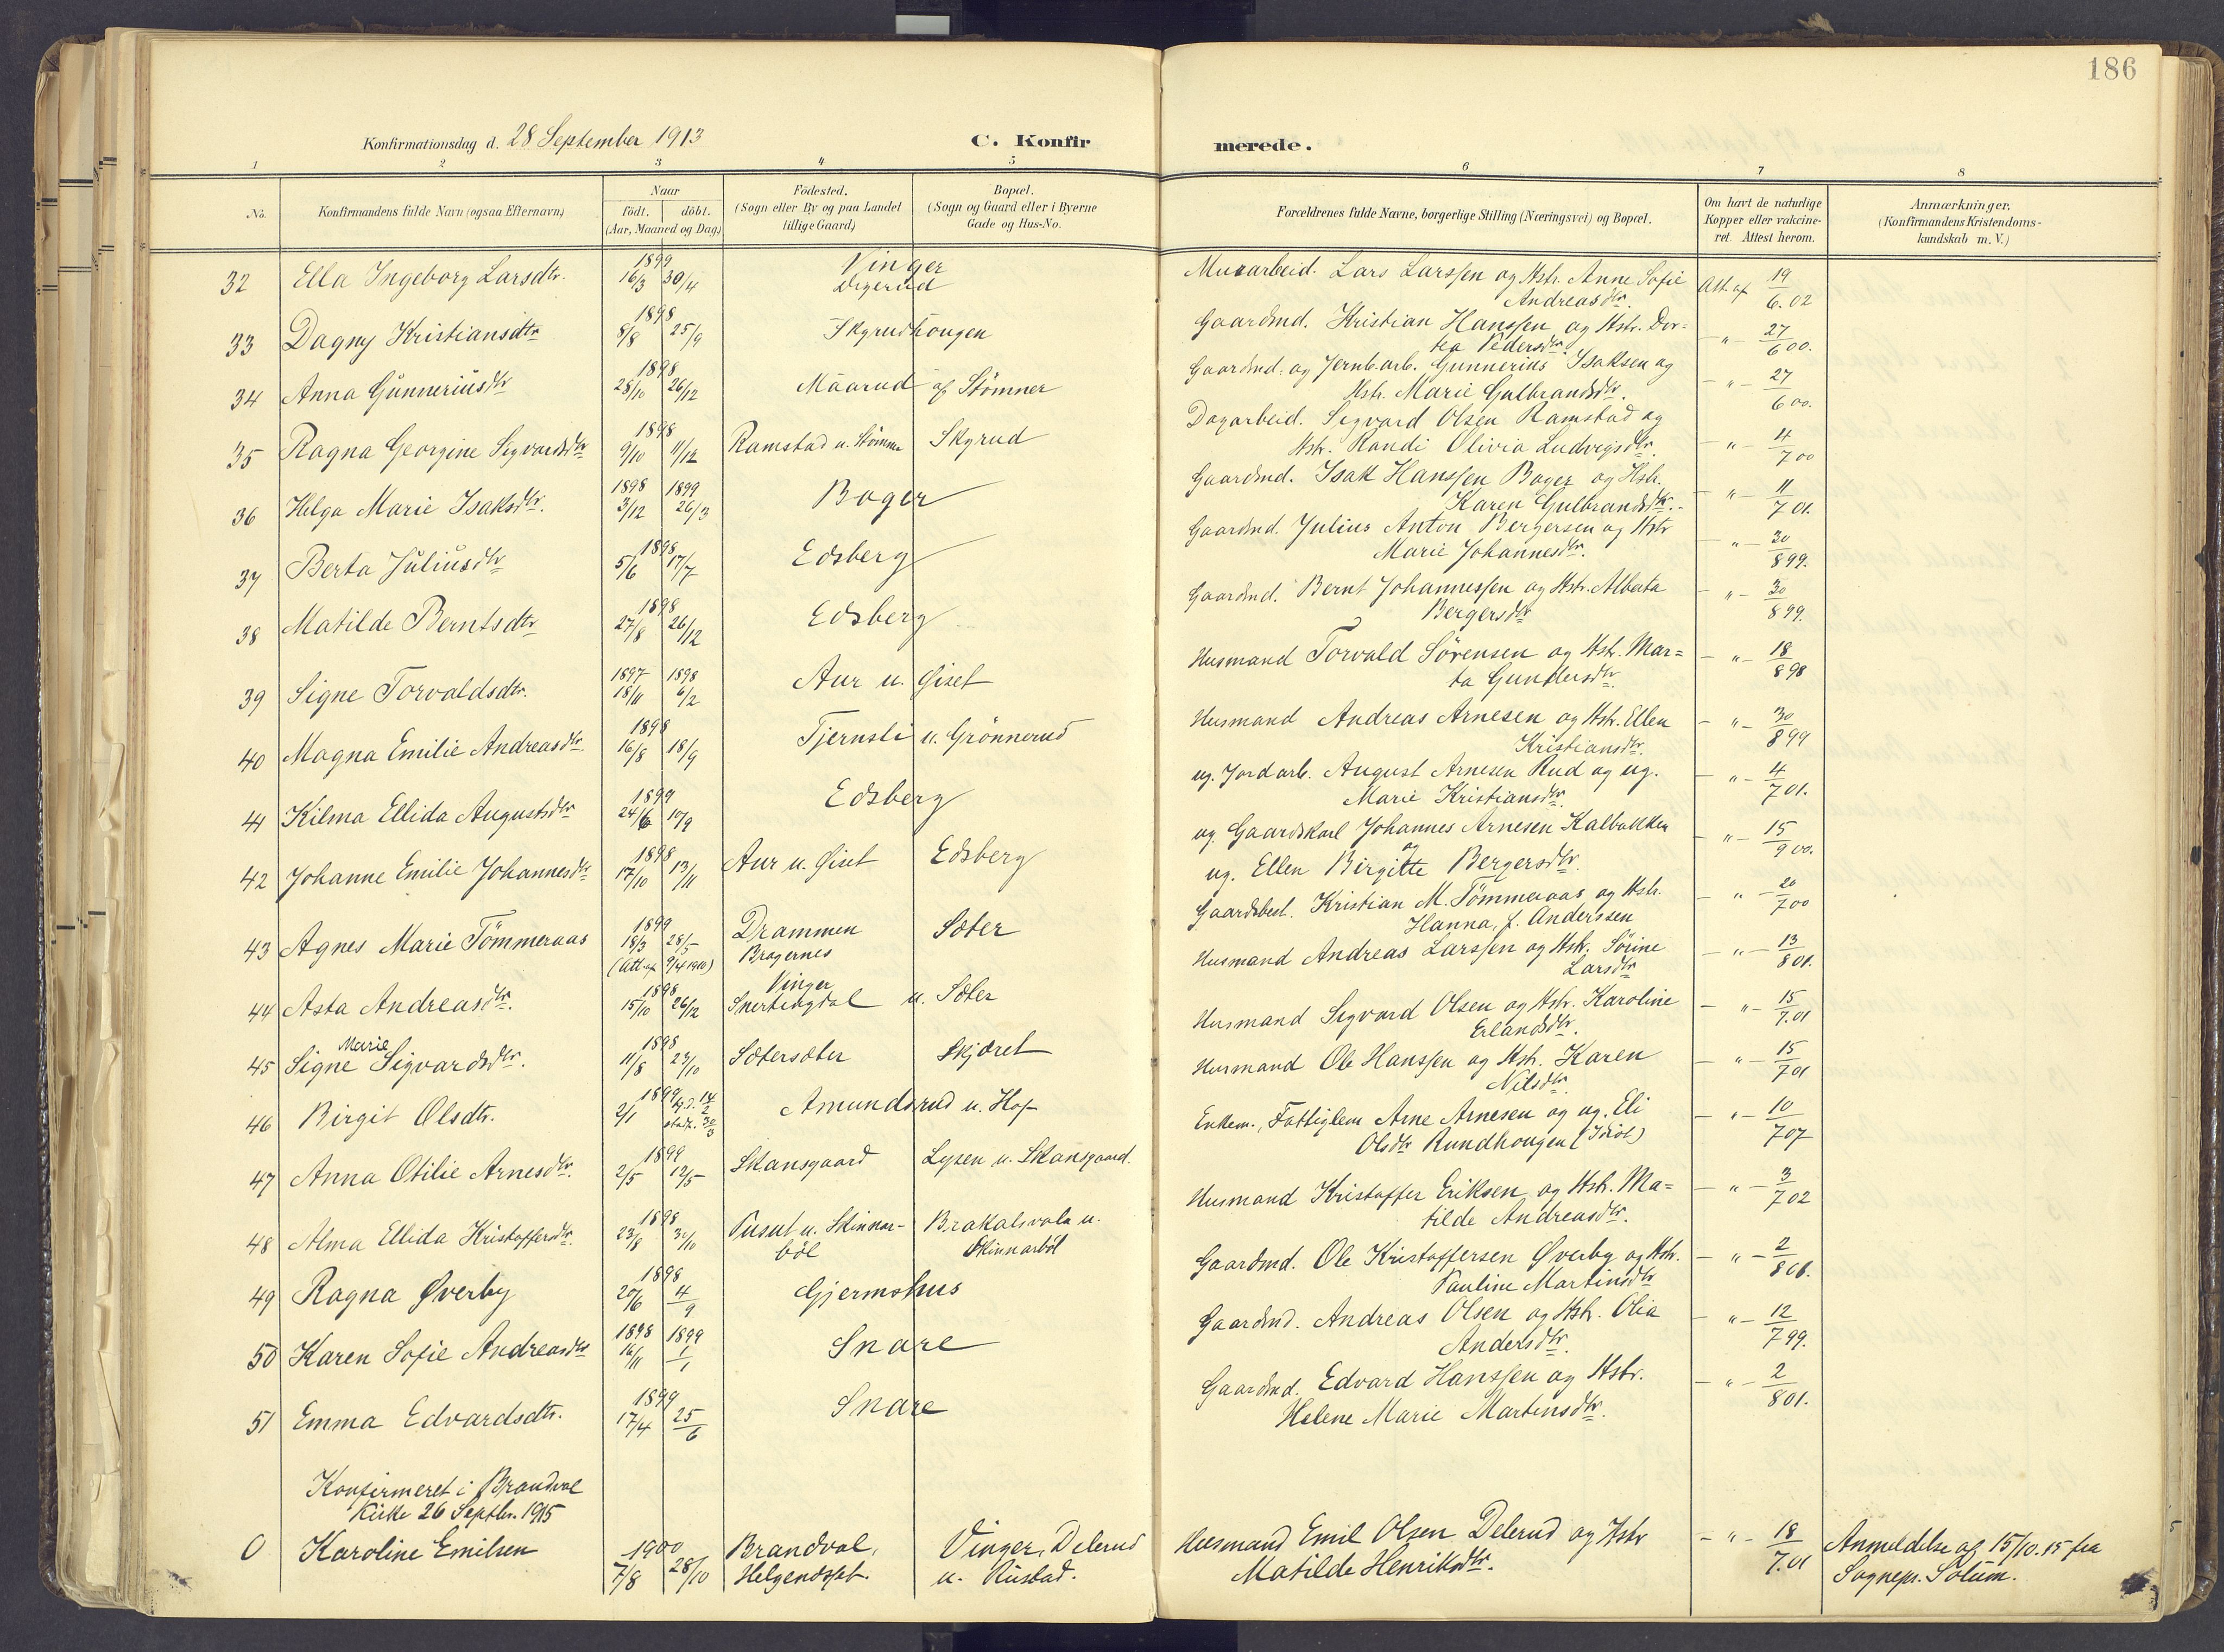 186
Konfirmationsdag d. 28 September 1913
C. Konfirmerede.
1 2 3 4 5 6 7 8
No. Konfirmandens fulde Navn (ogsaa Efternavn) Naar født. døbt. (Aar, Maaned og Dag) Födested. (Sogn eller By og paa Landet tillige Gaard) Bopæl. (Sogn og Gaard eller i Byerne Gade og Hus-No. Forældrenes fulde Navne, borgerlige Stilling (Næringsvei) og Bopæl. Om havt de naturlige Kopper eller vakcineret. Attest herom. Anmærkninger. (Konfirmandens Kristendomskundskab m. V.)
32 Ella Ingeborg Larsdtr. 1899 16/3 30/4 Vinger Digerud Murarbeid. Lars Larssen og Hstr. Anne Sofie Andreasdtr. Att. af 19/6.02
33 Dagny Kristiansdtr 1898 8/8 25/9 Skyrudhougen Gaardmd. Kristian Hanssen og Hstr. Dortea Pedersdtr. - " - 27/6 00.
34 Anna Gunneriusdtr 1898 28/10 26/12 Maarud af Stömner Gaardmd. og Jernb.arb. Gunnerius Isaksen og Hstr. Marie Gulbrandsdtr. - " - 27/6 00.
35 Ragna Georgine Sigvardsdtr 1898 9/10 11/12 Ramstad u. Stömner Skyrud Dagarbeid. Sigvard Olsen Ramstad og Hstr. Randi Olivia Ludvigsdtr. - " - 4/7 00
36 Helga Marie Isaksdtr. 1898 3/12 1899 26/3 Boger Gaardmd. Isak Hanssen Boger og Hstr. Karen Gulbrandsdtr. - " - 11/7 01.
37 Berta Juliusdtr 1898 5/6 17/7 Edsberg Gaardmd. Julius Anton Bergersen og Hstr Marie Johannesdtr. - " - 30/8 99.
38 Matilde Berntsdtr 1898 27/8 26/12 Edsberg Gaardmd. Bernt Johannessen og Hstr. Alberta Bergersdtr - " - 30/8 99.
39 Signe Torvaldsdtr. 1897 18/11 1898 6/2 Aur u. Giset Husmand Torvald Sörensen og Hstr. Marta Gundersdtr. - " - 18/8 98
40 Magna Emilie Andreasdtr. 1898 16/8 18/9 Tjernsli u. Grönnerud Husmand Andreas Arnesen og Hstr. Ellen Kristiansdtr. - " - 30/8 99
41 Kilma Ellida Augustsdtr 1899 24/6 10/9 Edsberg ug. Jordarb. August Arnesen Rud og ug. Marie Kristiansdtr. - " - 4/7 01.
42 Johanne Emilie Johannesdtr 1898 17/10 13/11 Aur u. Giset Edsberg ug. Gaardskarl Johannes Arnesen Kalbakken og ug. Ellen Birgitte Bergersdtr. - " - 15/9 00.
43 Agnes Marie Tömmeraas 1899 18/3 28/5 (Att. af 9/4 1910) Drammen Bragernes Sæter Gaardsbest. Kristian M. Tömmeraas og Hstr. Hanna, f. Anderssen - " - 20/7 00
44 Asta Andreasdtr. 1898 15/10 26/12 Vinger Snertingdal u. Sæter Husmand Andreas Larssen og Hstr. Sörine Larsdtr - " - 13/8 01.
45 Signe Marie Sigvardsdtr. 1898 11/8 23/10 Sætersæter Skjæret Husmand Sigvard Olsen og Hstr. Karoline Erlandsdtr. - " - 15/7.01
46 Birgit Olsdtr. 1899 2/1 hj.d. 14/2 stadf. 30/3 Amundsrud u. Hof Husmand Ole Hanssen og Hstr. Karen Nilsdtr. - " - 15/7 01
47 Anna Otilie Arnesdtr. 1899 2/5 12/5 Skansgaard Lysen u. Skansgaard. Enkem., Fattiglem Arne Arnesen og ug. Eli Olsdtr Rundhougen (Idiot) - " - 10/7 07
48 Alma Ellida Kristoffersdtr. 1898 23/8 30/10 Pusut u. Skinnarböl Brakalsvola u. Skinnarböl Husmand Kristoffer Eriksen og Hstr. Matilde Andreasdtr. - " - 3/7 02
49 Ragna Øverby 1898 20/6 4/9 Gjermshus Gaardmd. Ole Kristoffersen Øverby og Hstr. Pauline Martinsdtr - " - 2/8 01.
50 Karen Sofie Andreasdtr 1898 16/11 1899 1/1 Snare Gaardmd. Andreas Olsen og Hstr. Olia Andersdtr. - " - 12/7 99.
51 Emma Edvardsdtr. 1899 17/4 25/6 Snare Gaardmd. Edvard Hanssen og Hstr. Helene Marie Martinsdtr. - " - 2/8 01.
Konfirmeret i Brandval
Kirke 26 Septbr. 1915
0 Karoline Emilsen 1900 7/8 28/10 Brandval, Helgendsset. Vinger, Delerud u. Rustad. Husmand Emil Olsen Delerud og Hstr Matilde Henriksdtr. - " - 18/7.01 Anmeldelse af 15/10.15 fra Sognepr. Solum.